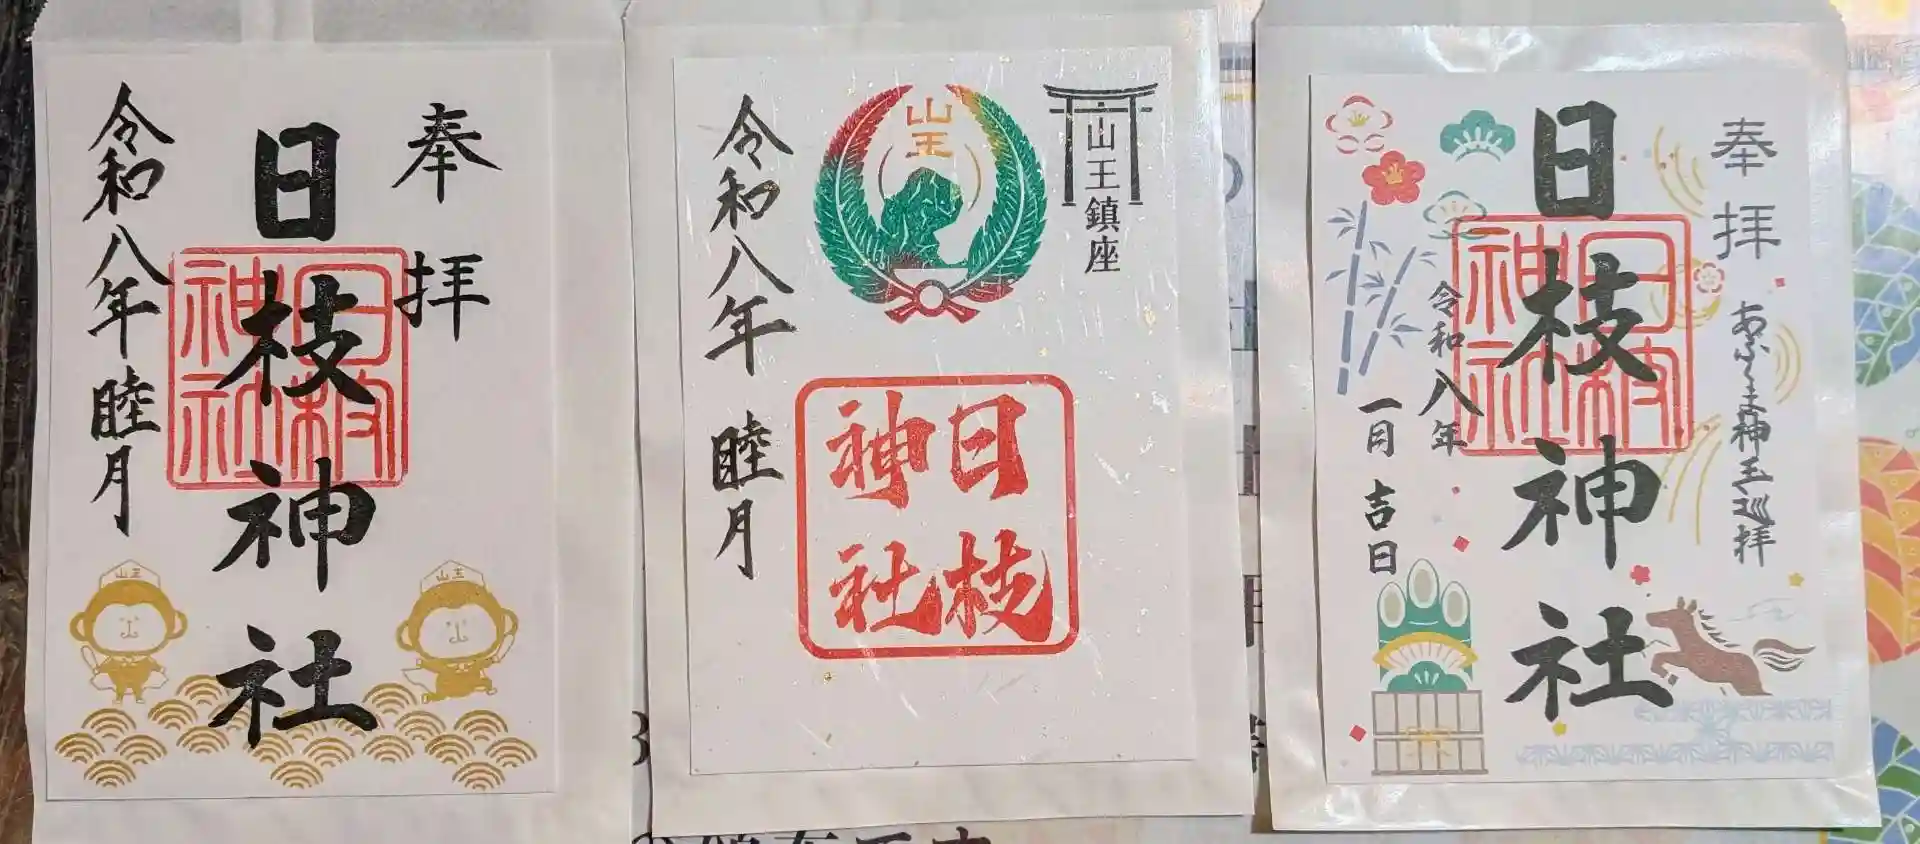 奉拝
日枝神社
日枝神社
令和八年 睦月
山王
山王
山王鎮座
山王
日枝神社
令和八年 睦月
奉拝
あふくま神玉巡拝
日枝神社
日枝神社
令和八年
一月吉日